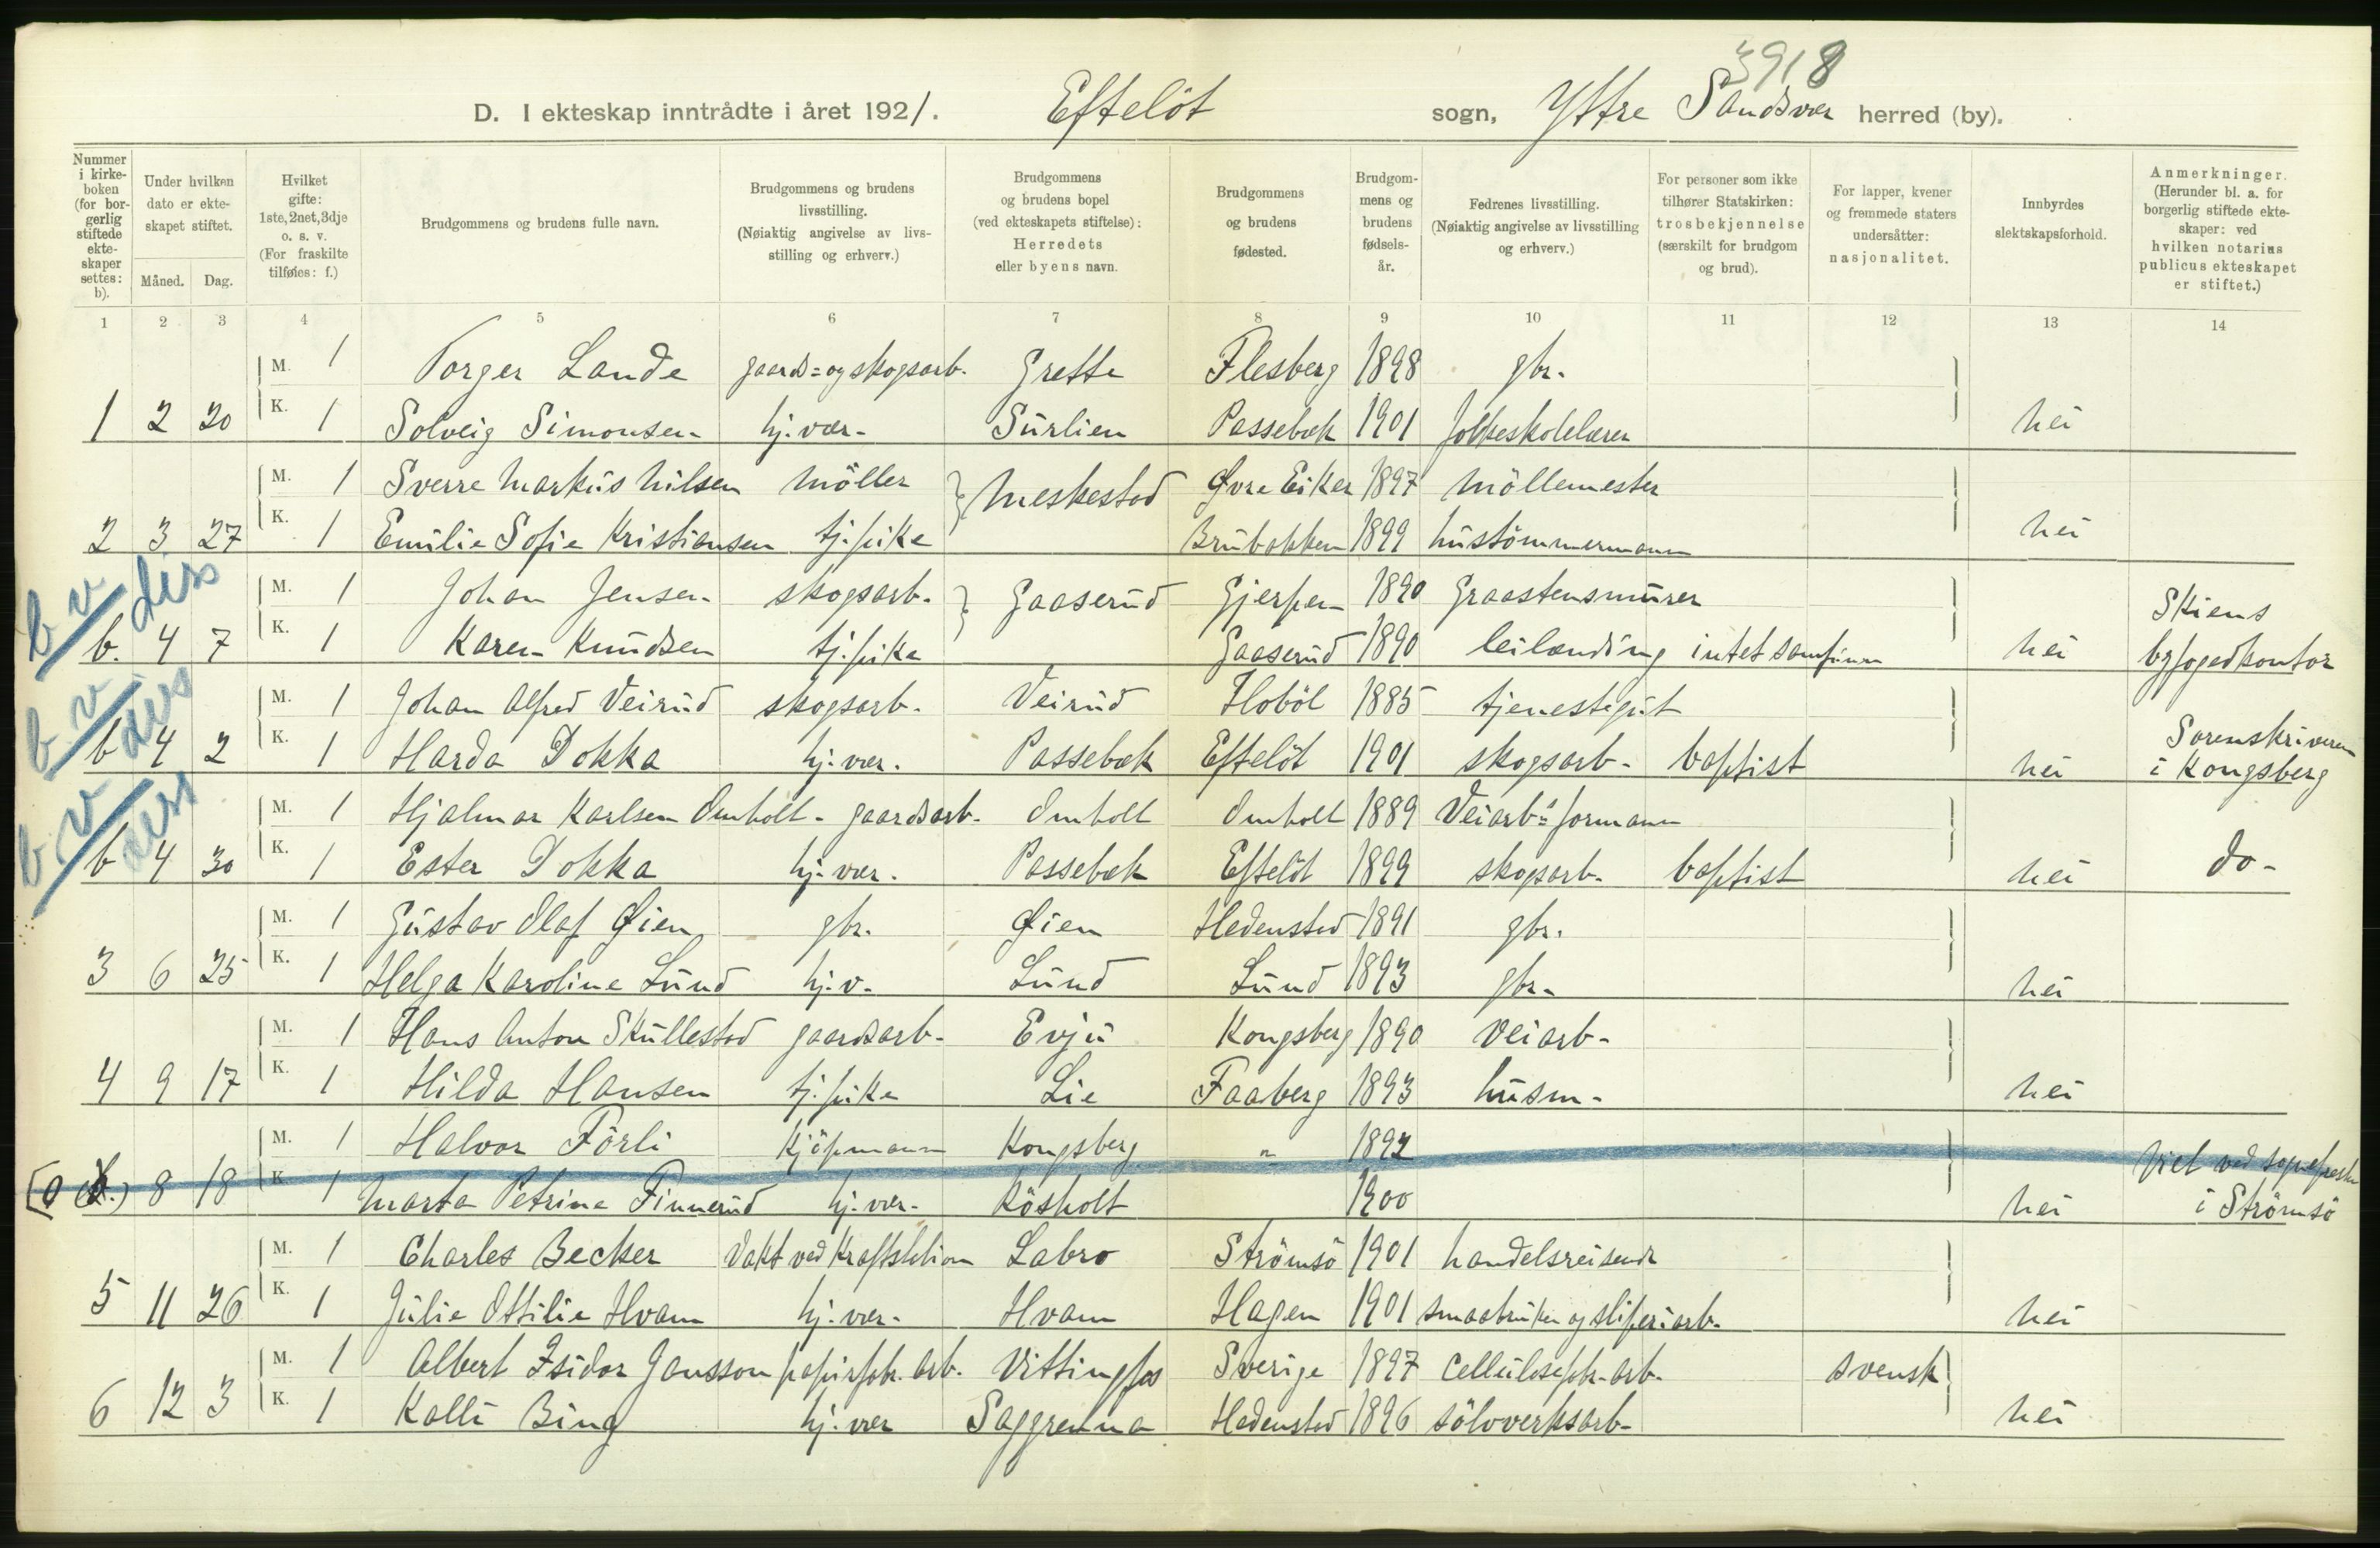 3918
D. I ekteskap inntrådte i året 1921. Efteløt sogn, Yttre Sandsvær herred (by).
Nummer i kirkeboken (for borgerlig stiftede ekteskaper settes: b). Under hvilken dato er ekteskapet stiftet. Måned. Dag. Hvilket gifte: 1ste, 2net, 3dje o. s. v. (For fraskilte tilføies: f.) Brudgommens og brudens fulle navn. Brudgommens og brudens livsstilling. (Nøiaktig angivelse av livsstilling og erhverv.) Brudgommens og brudens bopel (ved ekteskapets stiftelse): Herredets eller byens navn. Brudgommens og brudens fødested. Brudgommens og brudens fødselsår. Fedrenes livsstilling. (Nøiaktig angivelse av livsstilling og erhverv.) For personer som ikke tilhører Statskirken: trosbekjennelse (særskilt for brudgom og brud). For lapper, kvener og fremmede staters undersåtter: nasjonalitet. Innbyrdes slektskapsforhold. Anmerkninger. (Herunder bl. a. for borgerlig stiftede ekteskaper: ved hvilken notarius publicus ekteskapet er stiftet.)
1 2 3 4 5 6 7 8 9 10 11 12 13 14
M. 1 Torger Lande gaards= og skogsarb. Grette Flesberg 1898 gbr.
1 2 20 K. 1 Solveig Simonsen hj. vær. Surlien Passebæk 1901 folkeskolelærer nei
M. 1 Sverre Markus Nilsen möller Meskestad Øvre Eiker 1897 Möllemester
2 3 27 K. 1 Emilie Sofie Kristiansen tj. pike Brubakken 1899 hustömmermann nei
b v ders
M. 1 Johan Jensen skogsarb. Gaaserud Gjerpen 1890 Graastensmurer Skiens
b. 4 7 K. 1 Karen Knudsen tj. pike Gaaserud 1890 leilænding intet samfunn nei byfogedkontor
b v ders
M. 1 Johan Alfred Veirud skogsarb. Veirud Hoböl 1885 tjenestegut
b 4 2 K. 1 Harda Dokka hj. vær. Passebæk Efteløt 1901 skogsarb. baptist nei Sorenskriveren i Kongsberg
b v ders
M. 1 Hjalmar Karlsen Omholt gaardsarb. Omholt Omholt 1889 Veiarb. formann
b 4 30 K. 1 Ester Dokka hj. vær. Passebæk Efteløt 1899 skogsarb. baptist nei do-
M. 1 Gustav Olaf Øien gbr. Øien Hedenstad 1891 gbr.
3 6 25 K. 1 Helga Karoline Lund hj. v. Lund Lund 1893 gbr.
nei
M. 1 Hans Anton Skullestad gaardsarb. Evju Kongsberg 1890 Veiarb.
4 9 17 K. 1 Hilda Hansen tj. pike Lie Faaberg 1893 husm. nei
M. 1 Halvor Förli Kjöpmann Kongsberg " 1892 Viet ved sogneprest
8 18 K. 1 Marta Petrine Finnerud hj. vær. Kösholt 1900 nei i Strömsö
M. 1 Charles Becker Vakt ved Kraftstation Labro Strömsö 1901 handelsreisende
5 11 26 K. 1 Julie Ottilie Hvam hj. vær. Hvam Hagen 1901 smaabruker og sliperiarb. nei
M. 1 Albert Isidor Jansson papirfabr. arb. Vittingfos Sverige 1897 Cellulosefabr. arb. svensk
6 12 3 K. 1 Kalli Bing hj. vær Saggrenna Hedenstad 1896 sölvverksarb. nei